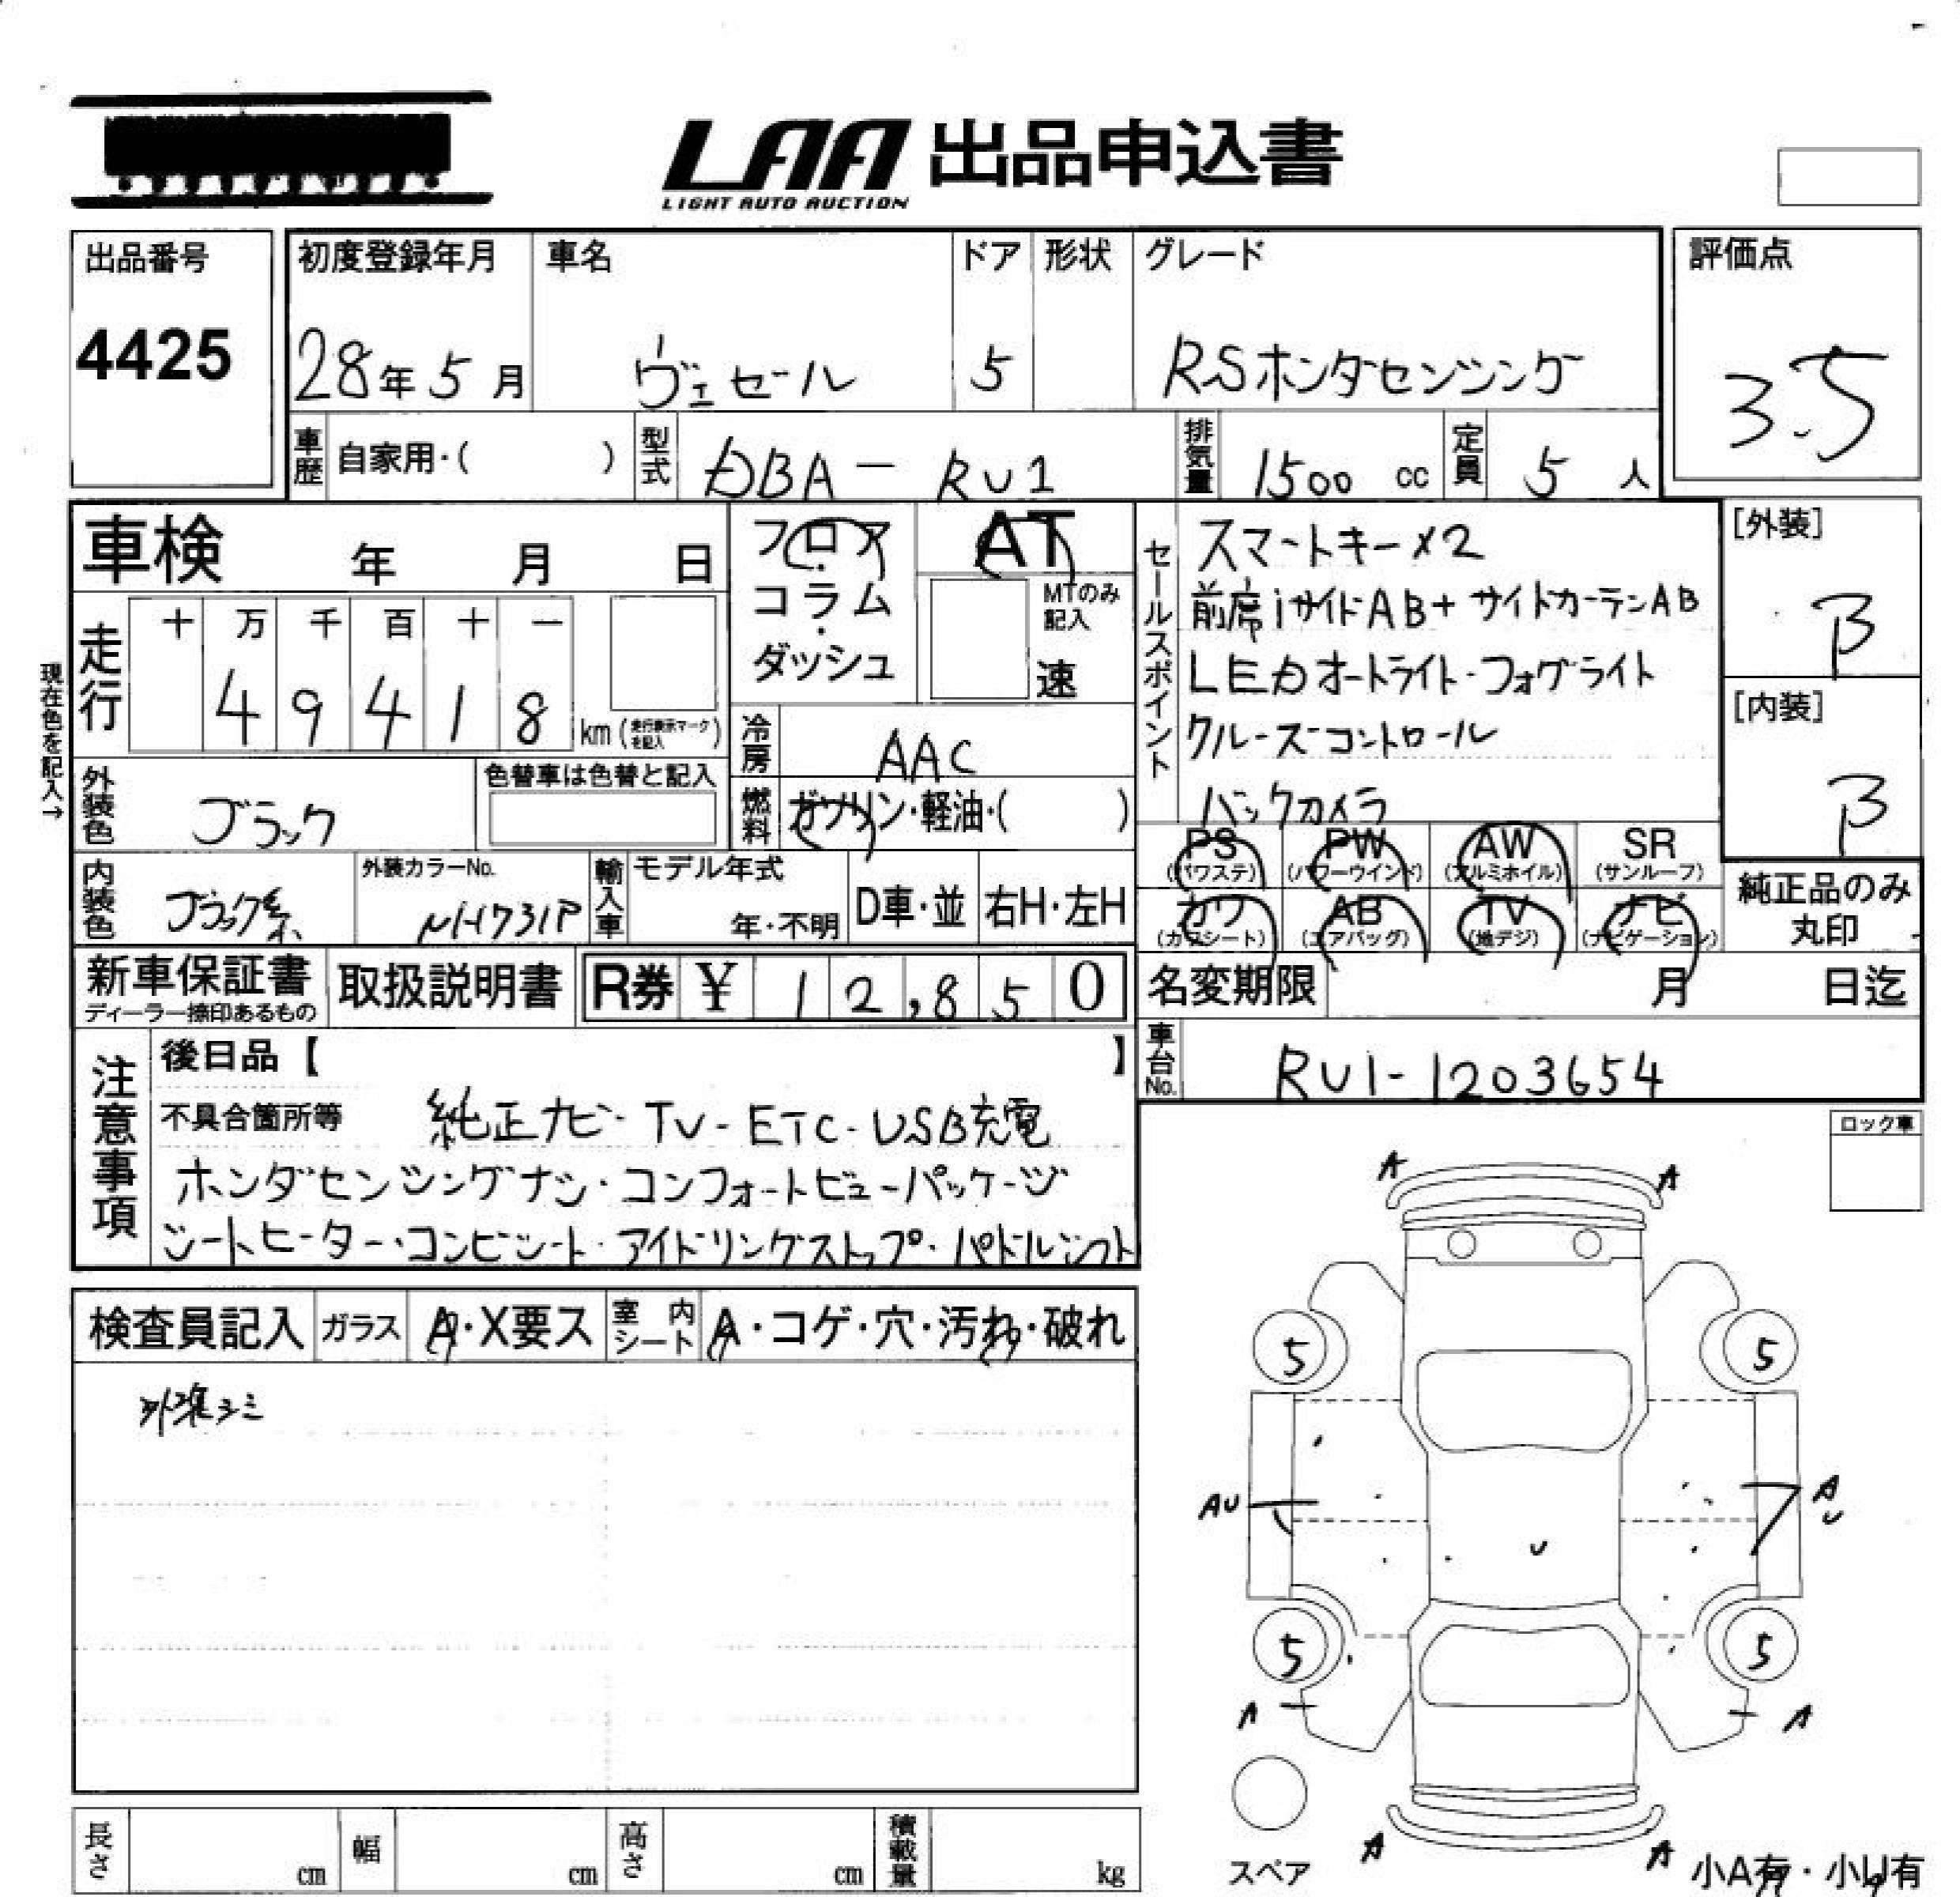 LAA 出品申込書
LIGHT AUTO AUCTION
出品番号
4425
初度登録年月 車名 ドア 形状 グレード
28年5月 ヴェゼール 5 RSホンダセンシング
評価点
3.5
車歴 自家用・( ) 型式 DBA-RU1 排気量 1500 cc 定員 5 人
車検 年 月 日
フロア・コラム・ダッシュ
AT
MTのみ記入
速
現在色を記入→
走行 十 万 千 百 十 一
4 9 4 1 8 km (走行表示マークを記入)
冷房 AAC
燃料 ガソリン・軽油・( )
外装色 ブラック
色替車は色替と記入
内装色 ブラック系
外装カラーNo.
NH731P
輸入車 モデル年式
年・不明 D車・並 右H・左H
セールスポイント
スマートキー×2
前席iサイドAB+サイドカーテンAB
LEDオートライト・フォグライト
クルーズコントロール
バックカメラ
[外装]
B
[内装]
B
PS (パワステ) PW (パワーウインド) AW (アルミホイル) SR (サンルーフ)
カワ (カワシート) AB (エアバッグ) TV (地デジ) ナビ (ナビゲーション)
純正品のみ
丸印
新車保証書
ディーラー捺印あるもの
取扱説明書
R券 ¥ 12,850
名変期限 月 日迄
車台No. RU1-1203654
注意事項
後日品【 】
不具合箇所等 純正ナビ-TV-ETC-USB充電
ホンダセンシングナシ・コンフォートビューパッケージ
シートヒーター・コンビシート・アイドリングストップ・パドルシフト
ロック車
検査員記入 ガラス A・X要ス 室内シート A・コゲ・穴・汚れ・破れ
シミ
A A
5 5
AU AU
U
5 5
A A
A A
スペア
小A有・小U有
長さ cm 幅 cm 高さ cm 積載量 kg